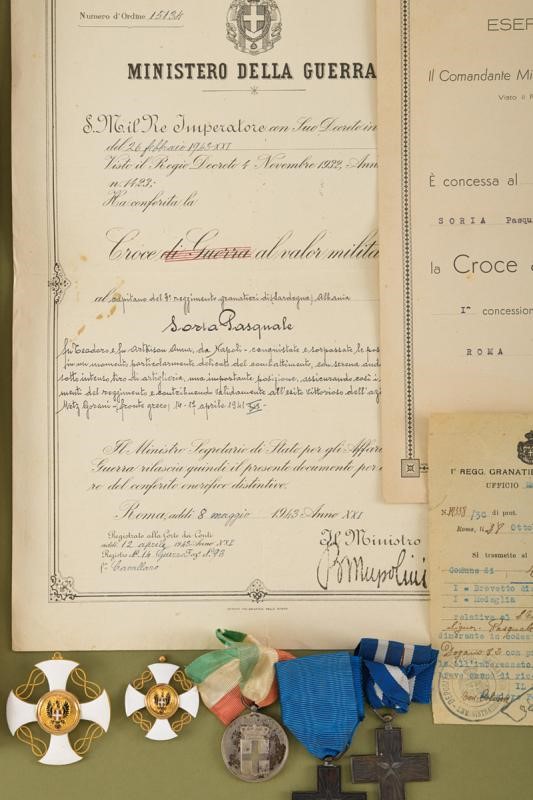 Numero d'Ordine 15134
MINISTERO DELLA GUERRA
S. M. il Re Imperatore con Suo Decreto in
del 26 febbraio 1943-XXI
Visto il Regio Decreto 4 Novembre 1932, Ann
n. 1423;
Ha conferita la
Croce di Guerra al valor milita
al capitano del 3° reggimento granatieri di (Sardegna) Albania
Soria Pasquale
fu Teodoro, fu Anna, da Napoli - conquistate e sorpassate le pos
in un momento particolarmente delicato del combattimento, con serena
sotto intenso tiro di artiglieria, una importante posizione, assicurando così i
menti del reggimento e contribuendo validamente all'esito vittorioso dell'az
fronte greco, 14-17 aprile 1941
Il Ministro Segretario di Stato per gli Affar
Guerra rilascia quindi il presente documento per
ro del conferito onorifico distintivo.
Roma, addì 8 maggio 1943 Anno XXI
Registrato alla Corte dei Conti
addì 12 aprile 1943 Anno XXI
Registro N. 14 Guerra Fog. N. 93
Cavallaro
Il Ministro
ESER
Il Comandante Mi
Visto il R
È concessa al
SORIA Pasqu
la Croce
concession
ROMA
1° REGG. GRANATIE
UFFICIO
N. /30 di prot.
Roma, li 28 Ottob
Si trasmette al
Comune di
1 = Brevetto di
1 = Medaglia
relativa al
Signor Pasquale
dimorante in codes